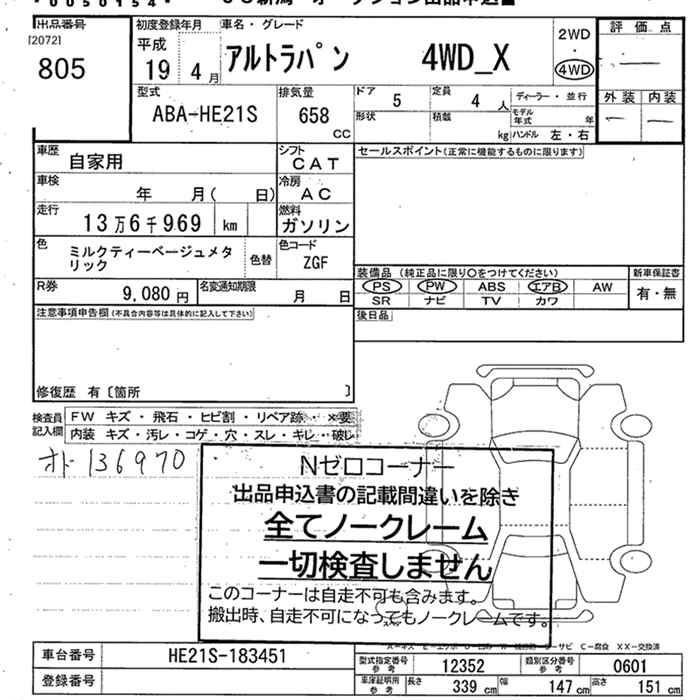 0050154
出品番号 初度登録年月 車名・グレード 評価点
[20722]
805 平成 19 4月 アルトラパン 4WD_X 2WD ・ 4WD
外装 内装
型式 排気量 ドア 定員 ディーラー・並行
ABA-HE21S 658 CC 5 4 人 モデル年式 年
形状 積載 kg ハンドル 左・右
車歴 自家用 シフト CAT セールスポイント(正常に機能するものに限ります)
車検 年 月( 日) 冷房 AC
走行 13万6千969 km 燃料 ガソリン
色 ミルクティーベージュメタリック 色替 色コード ZGF
装備品 (純正品に限り○をつけてください) 新車保証書
R券 9,080円 名変通知期限 月 日 PS PW ABS エアB AW 有・無
SR ナビ TV カワ
注意事項申告欄(不具合内容等は具体的に記入して下さい) 後日品
修復歴 有〔箇所 〕
検査員記入欄 FW キズ・飛石・ヒビ割・リペア跡・×要
内装 キズ・汚レ・コゲ・穴・スレ・キレ・破レ
オド 136970
Nゼロコーナー
出品申込書の記載間違いを除き
全てノークレーム
一切検査しません
このコーナーは自走不可も含みます。
搬出時、自走不可になってもノークレームです。
C-腐食 XX-交換済
車台番号 HE21S-183451 型式指定番号 参考 12352 類別区分番号 参考 0601
登録番号 車庫証明用 参考 長さ 339 cm 幅 147 cm 高さ 151 cm